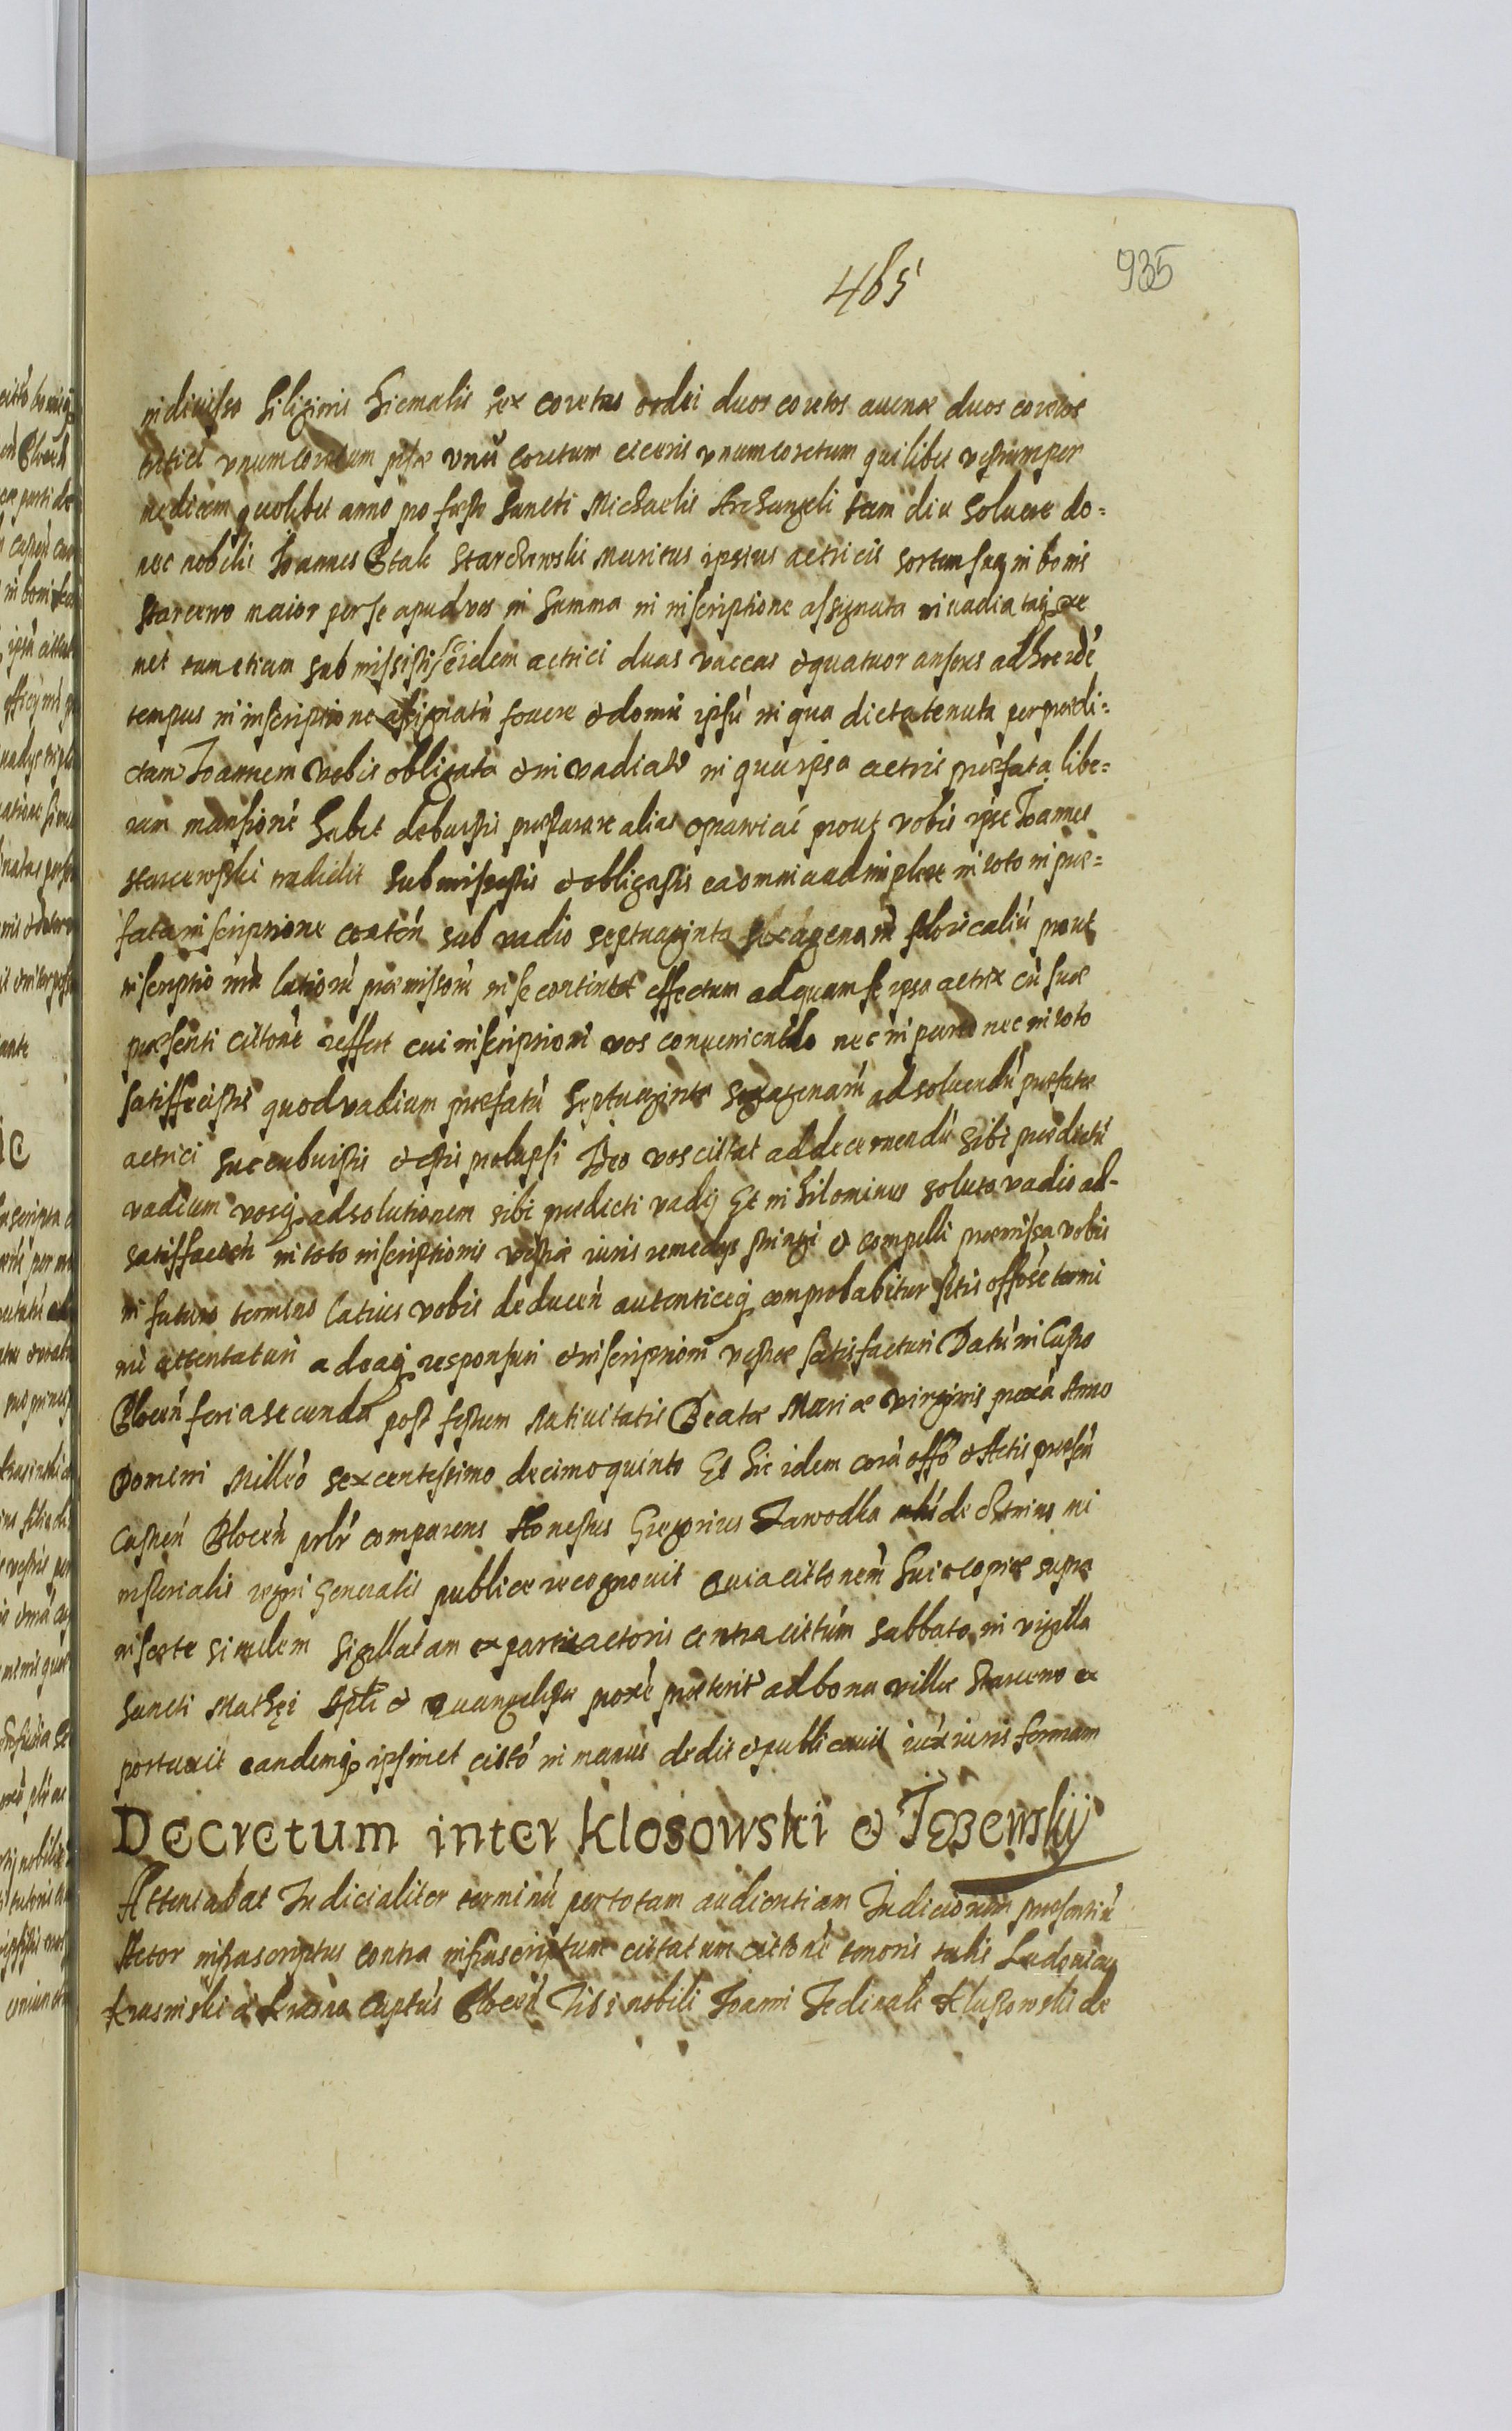 465
935
indiuisso siliginis hiemalis sex coretos ordei duos coretos auenæ duos coretos
tritici vnum coretum pisæ vnū coretum ciceris vnum coretum quilibet vestrum per
medium quolibet anno pro festo Sancti Michaelis Archangeli tam diu soluere do=
nec nobilis Joannes Stak Starczewski Maritus ipsius actricis sortem suā in bonis
Starczewo maior per se apud vos in summa in inscriptione assignata inuadiatā
met tum etiam submissistis eidem actrici duas vaccas et quatuor anseres ad
tempus in inscriptione assignatū fouere et domū ipsū in qua dicta tenuta per prædi=
ctum Joannem vobis obligata et inuadiata in qua ipsa actrix præfata libe=
ram mansionē habet debuistis præparare alias oprawiać prout vobis ipse Joannes
Starczewski tradidit submisistis et obligastis ea omnia adimplere in toto in præ=
fata inscriptione contēn sub vadio septuaginta sexagenarū pecūnialiū prout
inscriptio latiorū præmissorū in se continet effectum ad quam se ipsa actrix cū suæ
præsenti cittōne reffert cui inscriptioni vos conueniendo nec in parte nec in toto
satiffecistis quod vadium præfatū septuaginta sexagenarū ad soluendū præfatæ
actrici succubuistis et estis prolapsi Ideo vos cittat ad decernendū sibi prædictū
vadium vosq3 ad solutionem sibi prædicti vadij Et nihilominus soluto vadio ad
satiffacién in toto inscriptionis vestræ iuris remedijs stringi et compelli præmissa vobis
in futuro termino latius vobis deducén autenticeq3 comprobabitur sitis termi
nū attentaturi adeaq3 responsuri et inscriptioni vestræ satisfacturi Datū in Castro
Plocēn feria secunda post festum Natiuitatis Beatæ Mariæ virginis proxā Anno
Domini Milleō sexcentessimo decimoquinto Et hic idem corā offō et Actis præsēn
Castrēn Plocēn prlr comparens Honestus Gregorius Zawodka de mi
nisterialis regni Generalis publice recognouit Quia cittōnem huic copiæ supra
insertæ similem sigillatam ex parte actoris contra cittātum sabbato in vigilia
Sancti Mathęi Apłi et Euangelistæ proxē præteritō ad bona villæ Starczewo
portauit eandemq3 ipsimet cittō in manus dedit et publicauit iuxta iuris formam
Decretum inter Klosowski et Jezewskij
Attentabat Judicialiter terminū per totam audientiam Judiciorum præsentiū
Actor infrascriptus contra infrascriptum cittatum cittōnē tenoris talis Ludouicus
Krasinski de Krasne Captūs Plocēn Tibi nobili Joanni Klussowski de